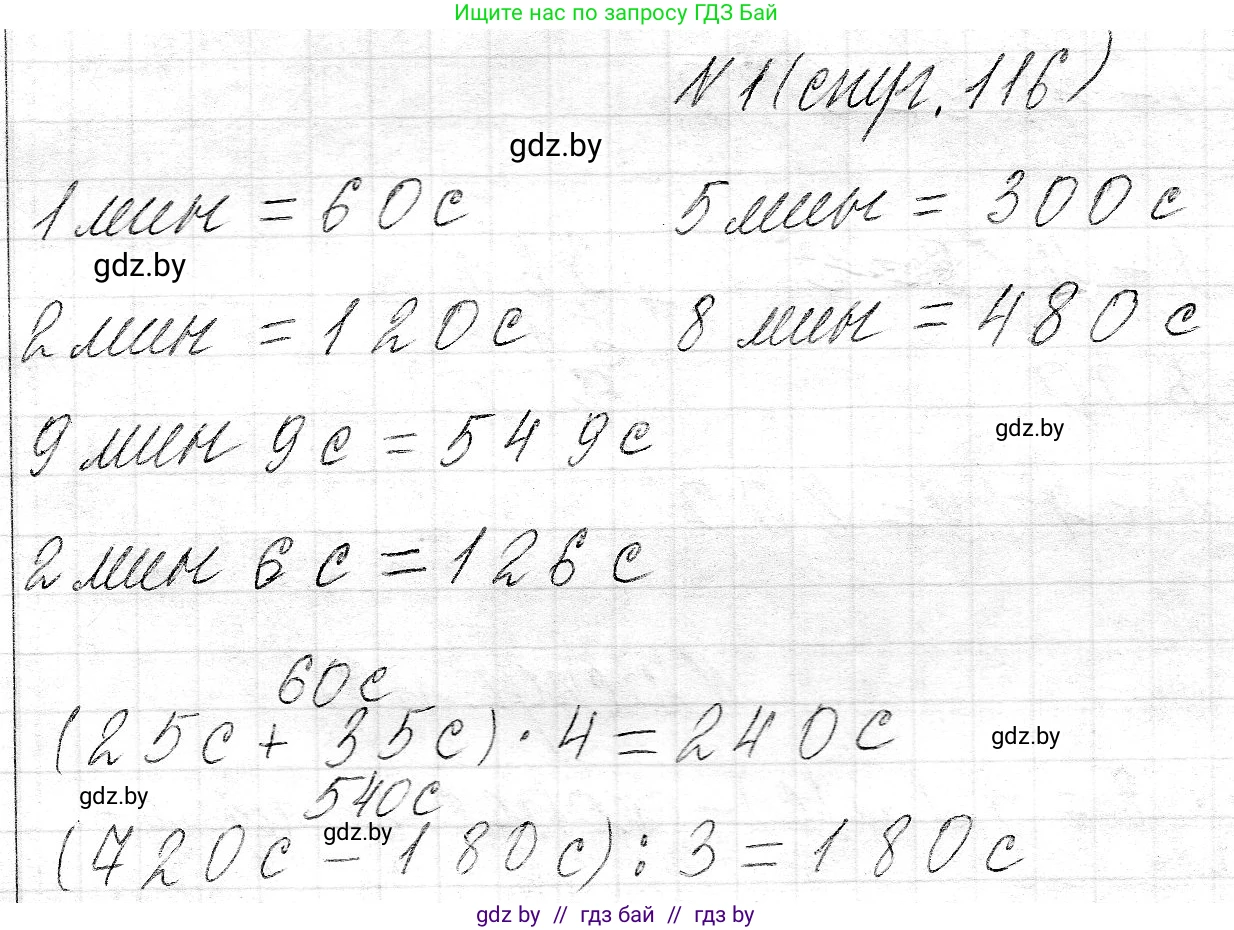 Ищите нас по запросу ГДЗ Бай
N 1 (стр. 116)
gdz.by
1 мин = 60 с 5 мин = 300 с
gdz.by
2 мин = 120 с 8 мин = 480 с
9 мин 9 с = 549 с
gdz.by
2 мин 6 с = 126 с
60 с
(25 с + 35 с) · 4 = 240 с
gdz.by
gdz.by
540 с
gdz.by
(720 с - 180 с) : 3 = 180 с
gdz by // гдз бай // гдз by